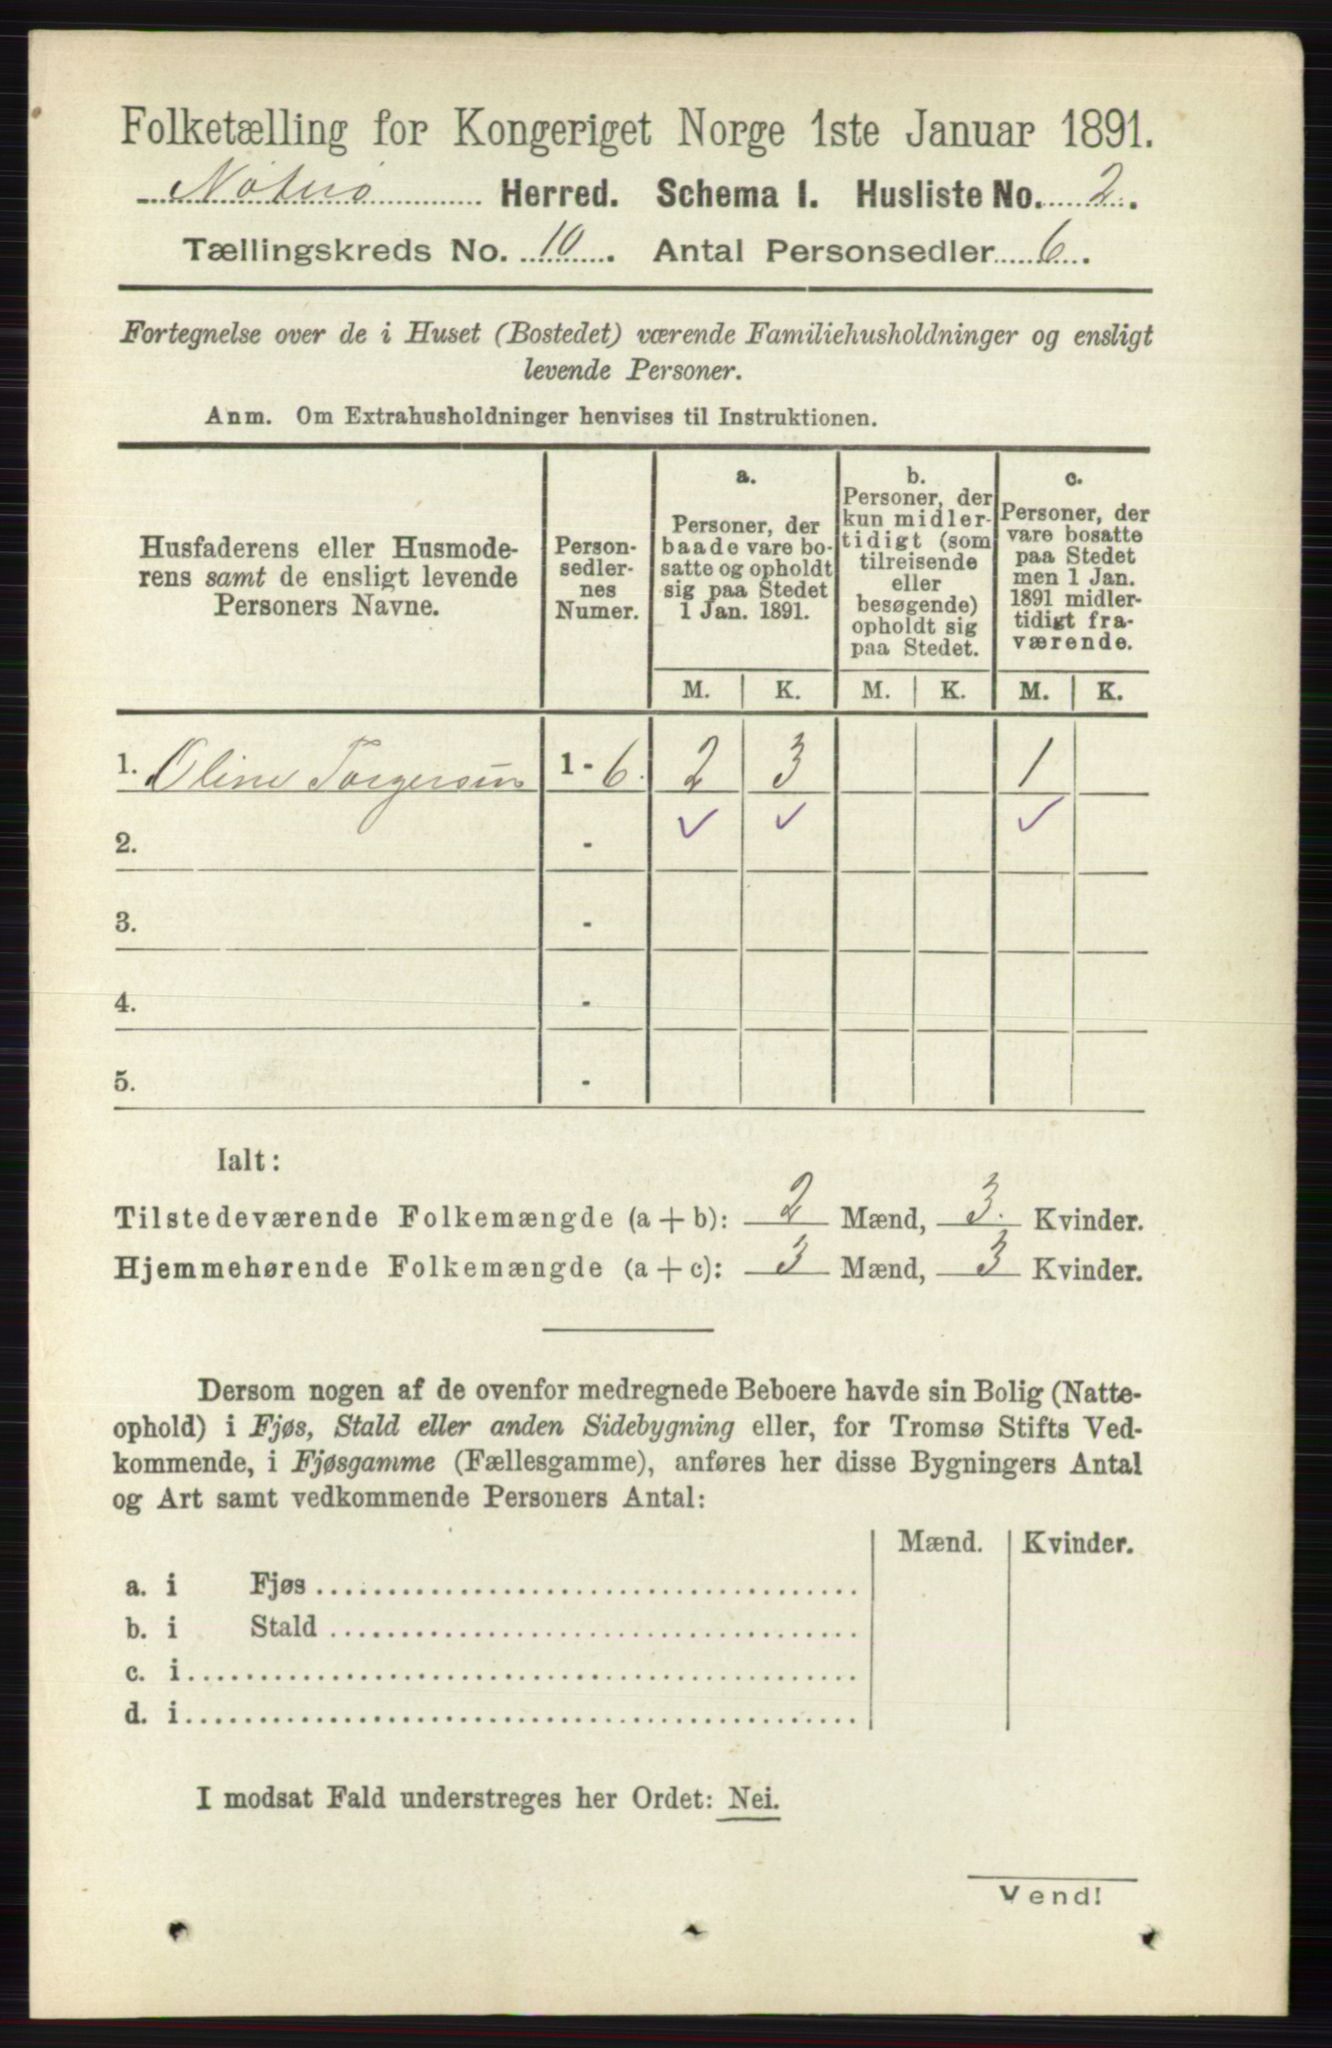 Folketælling for Kongeriget Norge 1ste Januar 1891.
Nøterø Herred. Schema 1. Husliste No. 2.
Tællingskreds No. 10. Antal Personsedler 6.
Fortegnelse over de i Huset (Bostedet) værende Familiehusholdninger og ensligt
levende Personer.
Anm. Om Extrahusholdninger henvises til Instruktionen.
Husfaderens eller Husmode-
rens samt de ensligt levende
Personers Navne.
Person-
sedler-
nes
Numer.
a.
Personer, der
baade vare bo-
satte og opholdt
sig paa Stedet
1 Jan. 1891.
b.
Personer, der
kun midler-
tidigt (som
tilreisende
eller
besøgende)
opholdt sig
paa Stedet.
c.
Personer, der
vare bosatte
paa Stedet
men 1 Jan.
1891 midler-
tidigt fra-
værende.
M. K. M. K. M. K.
1. Oline Torgersen 1 - 6. 2 3 1
2. - ✓ ✓ ✓
3. -
4. -
5. -
Ialt:
Tilstedeværende Folkemængde (a + b): 2 Mænd, 3. Kvinder.
Hjemmehørende Folkemængde (a + c): 3 Mænd, 3 Kvinder.
Dersom nogen af de ovenfor medregnede Beboere havde sin Bolig (Natte-
ophold) i Fjøs, Stald eller anden Sidebygning eller, for Tromsø Stifts Ved-
kommende, i Fjøsgamme (Fællesgamme), anføres her disse Bygningers Antal
og Art samt vedkommende Personers Antal:
Mænd. Kvinder.
a. i Fjøs
b. i Stald
c. i
d. i
I modsat Fald understreges her Ordet: Nei.
Vend!